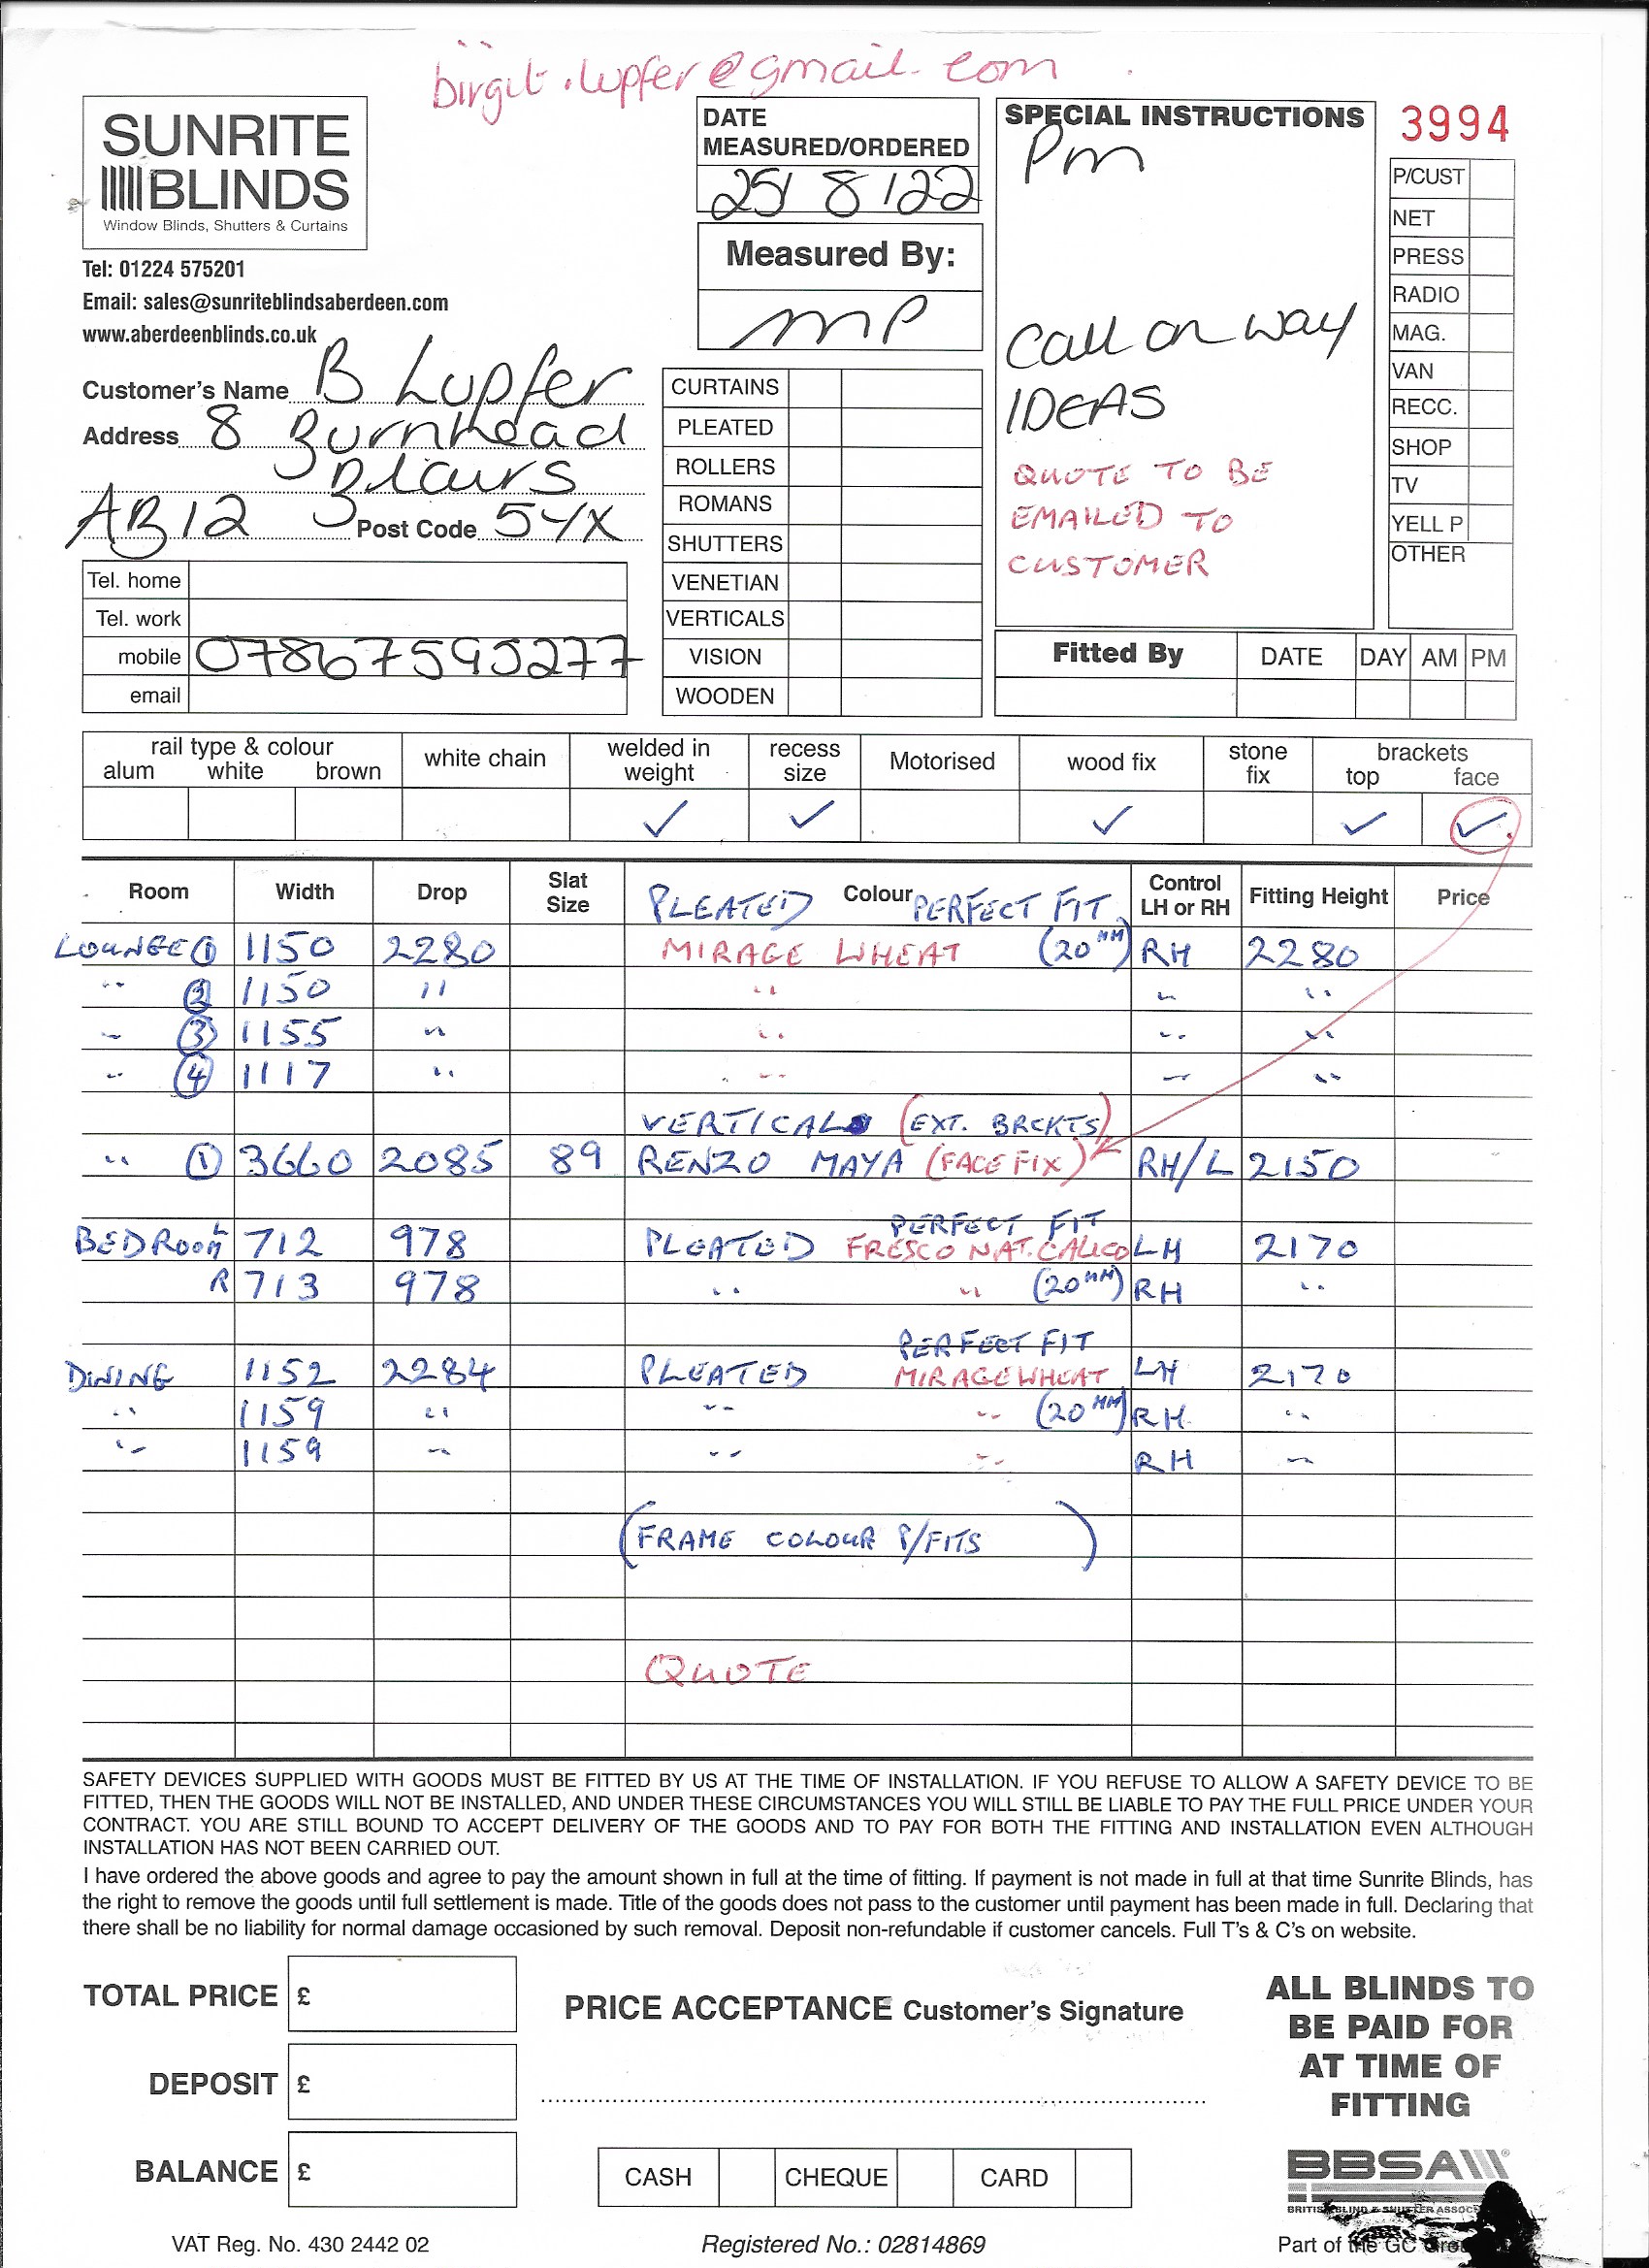 birgit.lupfer@gmail.com
SUNRITE
BLINDS
Window Blinds, Shutters & Curtains
Tel: 01224 575201
Email: sales@sunriteblindsaberdeen.com
www.aberdeenblinds.co.uk
Customer's Name B Lupfer
Address 8 Burnhead
Blairs
AB12 Post Code 5YX
Tel. home
Tel. work
mobile 07867595277
email
DATE
MEASURED/ORDERED
25/8/22
Measured By:
MP
CURTAINS
PLEATED
ROLLERS
ROMANS
SHUTTERS
VENETIAN
VERTICALS
VISION
WOODEN
SPECIAL INSTRUCTIONS
Pm
Call on way
IDEAS
QUOTE TO BE
EMAILED TO
CUSTOMER
3994
P/CUST
NET
PRESS
RADIO
MAG.
VAN
RECC.
SHOP
TV
YELL P
OTHER
Fitted By DATE DAY AM PM
rail type & colour
alum white brown
white chain
welded in
weight ✓
recess
size ✓
Motorised
wood fix ✓
stone
fix
brackets
top face
✓ ✓
Room Width Drop Slat Size Colour Control LH or RH Fitting Height Price
PLEATED PERFECT FIT
LOUNGE ① 1150 2280 MIRAGE WHEAT (20MM) RH 2280
" ② 1150 " " " "
" ③ 1155 " " " "
" ④ 1117 " " " "
VERTICALS (EXT. BRCKTS)
" ① 3660 2085 89 RENZO MAYA (FACE FIX) RH/L 2150
PERFECT FIT
BEDROOM L 712 978 PLEATED FRESCO NAT. CALICO LH 2170
R 713 978 " " (20MM) RH "
PERFECT FIT
DINING 1152 2284 PLEATED MIRAGE WHEAT LH 2170
" 1159 " " " (20MM) RH "
" 1159 " " " RH "
(FRAME COLOUR P/FITS )
QUOTE
SAFETY DEVICES SUPPLIED WITH GOODS MUST BE FITTED BY US AT THE TIME OF INSTALLATION. IF YOU REFUSE TO ALLOW A SAFETY DEVICE TO BE
FITTED, THEN THE GOODS WILL NOT BE INSTALLED, AND UNDER THESE CIRCUMSTANCES YOU WILL STILL BE LIABLE TO PAY THE FULL PRICE UNDER YOUR
CONTRACT. YOU ARE STILL BOUND TO ACCEPT DELIVERY OF THE GOODS AND TO PAY FOR BOTH THE FITTING AND INSTALLATION EVEN ALTHOUGH
INSTALLATION HAS NOT BEEN CARRIED OUT.
I have ordered the above goods and agree to pay the amount shown in full at the time of fitting. If payment is not made in full at that time Sunrite Blinds, has
the right to remove the goods until full settlement is made. Title of the goods does not pass to the customer until payment has been made in full. Declaring that
there shall be no liability for normal damage occasioned by such removal. Deposit non-refundable if customer cancels. Full T's & C's on website.
TOTAL PRICE £
DEPOSIT £
BALANCE £
PRICE ACCEPTANCE Customer's Signature
CASH CHEQUE CARD
ALL BLINDS TO
BE PAID FOR
AT TIME OF
FITTING
BBSA
BRITISH BLIND & SHUTTER ASSOC
Part of the GC
VAT Reg. No. 430 2442 02
Registered No.: 02814869